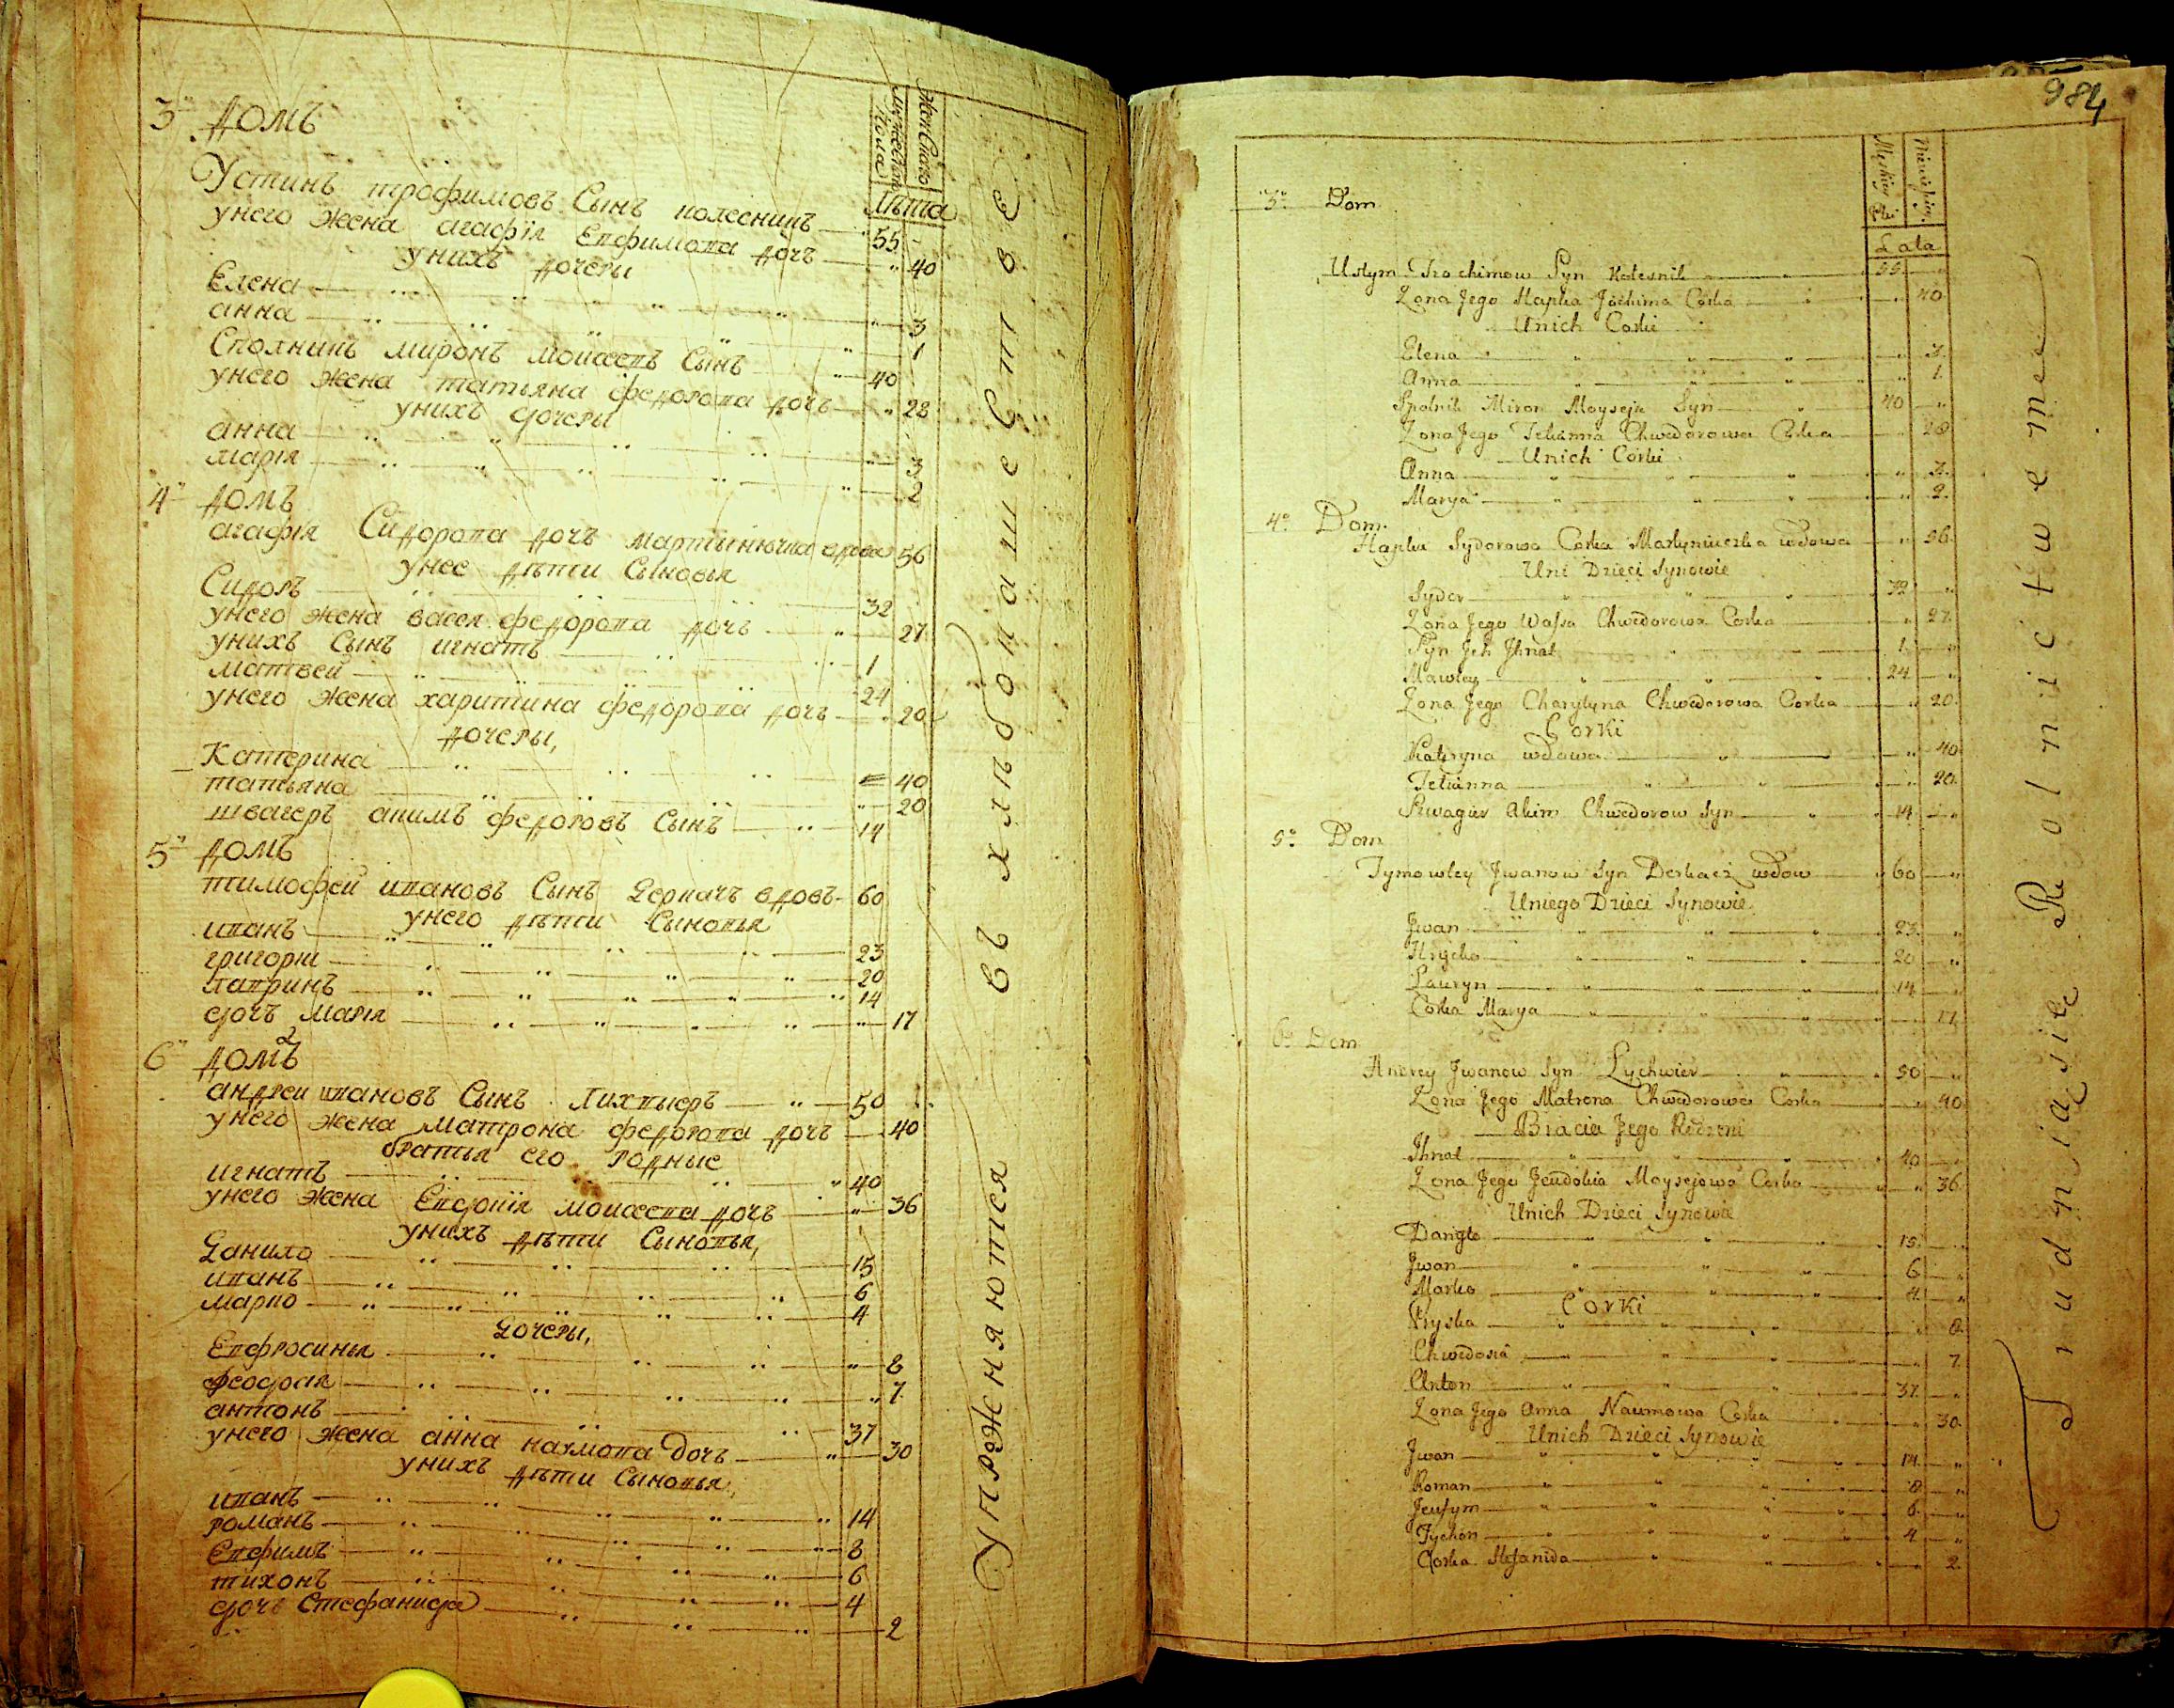 Женскаго
Мужескаго
Пола
Лѣта
3 домъ
Устинъ трофимовъ Сынъ колесникъ 55
унего жена агафія Евфимова дочъ 40
унихъ дочеры
Елена 3
анна 1
Сполникъ миронъ моисеевъ Сынъ 40
унего жена татьяна федорова дочъ 28
унихъ дочеры
анна 3
марія 2
4 домъ
агафія Сидорова дочъ мартынючка вдова 56
унее дѣти Сыновья
Сидоръ 32
унего жена васса федорова дочъ 27
унихъ Сынъ игнатъ 1
матвей 24
унего жена харитина федорова дочъ 20
дочеры,
Катерина 40
татьяна 20
швагеръ акимъ федоровъ Сынъ 14
5 домъ
тимофей ивановъ Сынъ деркачъ вдовъ 60
унего дѣти Сыновья
иванъ 23
григории 20
лавринъ 14
дочъ марія 17
6 домъ
андреи ивановъ Сынъ Лихвыеръ 50
унего жена матрона федорова дочъ 40
братья его родные
игнатъ 40
унего жена Евдокія моисеева дочъ 36
унихъ дѣти Сыновья,
данило 15
иванъ 6
марко 4
дочеры,
Евфросинья 8
феодрая 7
антонъ 37
унего жена анна наумова дочъ 30
унихъ дѣти Сыновья,
иванъ 14
романъ 8
Евфимъ 6
тихонъ 4
дочъ Стефанида 2
Упражняются въ хлѣбопашествѣ
984
Męskiey Płci
Niewieskiey
Lata
3. Dom
Ustym Trochimow Syn Kolesnik 55
Zona Jego Hapka Jochima Corka 40
Unich Corki
Elena 3.
Anna 1.
Spolnik Miron Moyseja Syn 40
Zona Jego Tetianna Chwedorowa Corka 28
Unich Corki
Anna 3.
Marya 2.
4. Dom.
Hapka Sydorowa Corka Martyniuczka wdowa 56.
Uni Dzieci Synowie
Sydor 32
Zona Jego Wassa Chwedorowa Corka 27.
Syn Jch Jhnat 1.
Mawtey 24
Zona Jego Charytyna Chwedorowa Corka 20.
Corki
Kateryna wdowa 40
Tetianna 20.
Szwagier Akim Chwedorow Syn 14
5. Dom
Tymowtey Jwanow Syn Derkacz wdow 60
Uniego Dzieci Synowie
Jwan 23.
Hrycko 20
Lauryn 14
Corka Marya 17
6. Dom
Andrey Jwanow Syn Lychwier 50
Zona Jego Matrona Chwedorowa Corka 40.
Bracia Jego Rodzeni
Jhnat 40
Zona Jego Jeudokia Moysejowa Corka 36.
Unich Dzieci Synowie
Danyło 15.
Jwan 6
Marko 4.
Corki
Pryska 8.
Chwedosia 7.
Anton 37.
Zona Jego Anna Naumowa Corka 30.
Unich Dzieci Synowie
Jwan 14.
Roman 8.
Jeufym 6.
Tychon 4
Corka Stefanida 2.
Trudnią się Rolnictwem